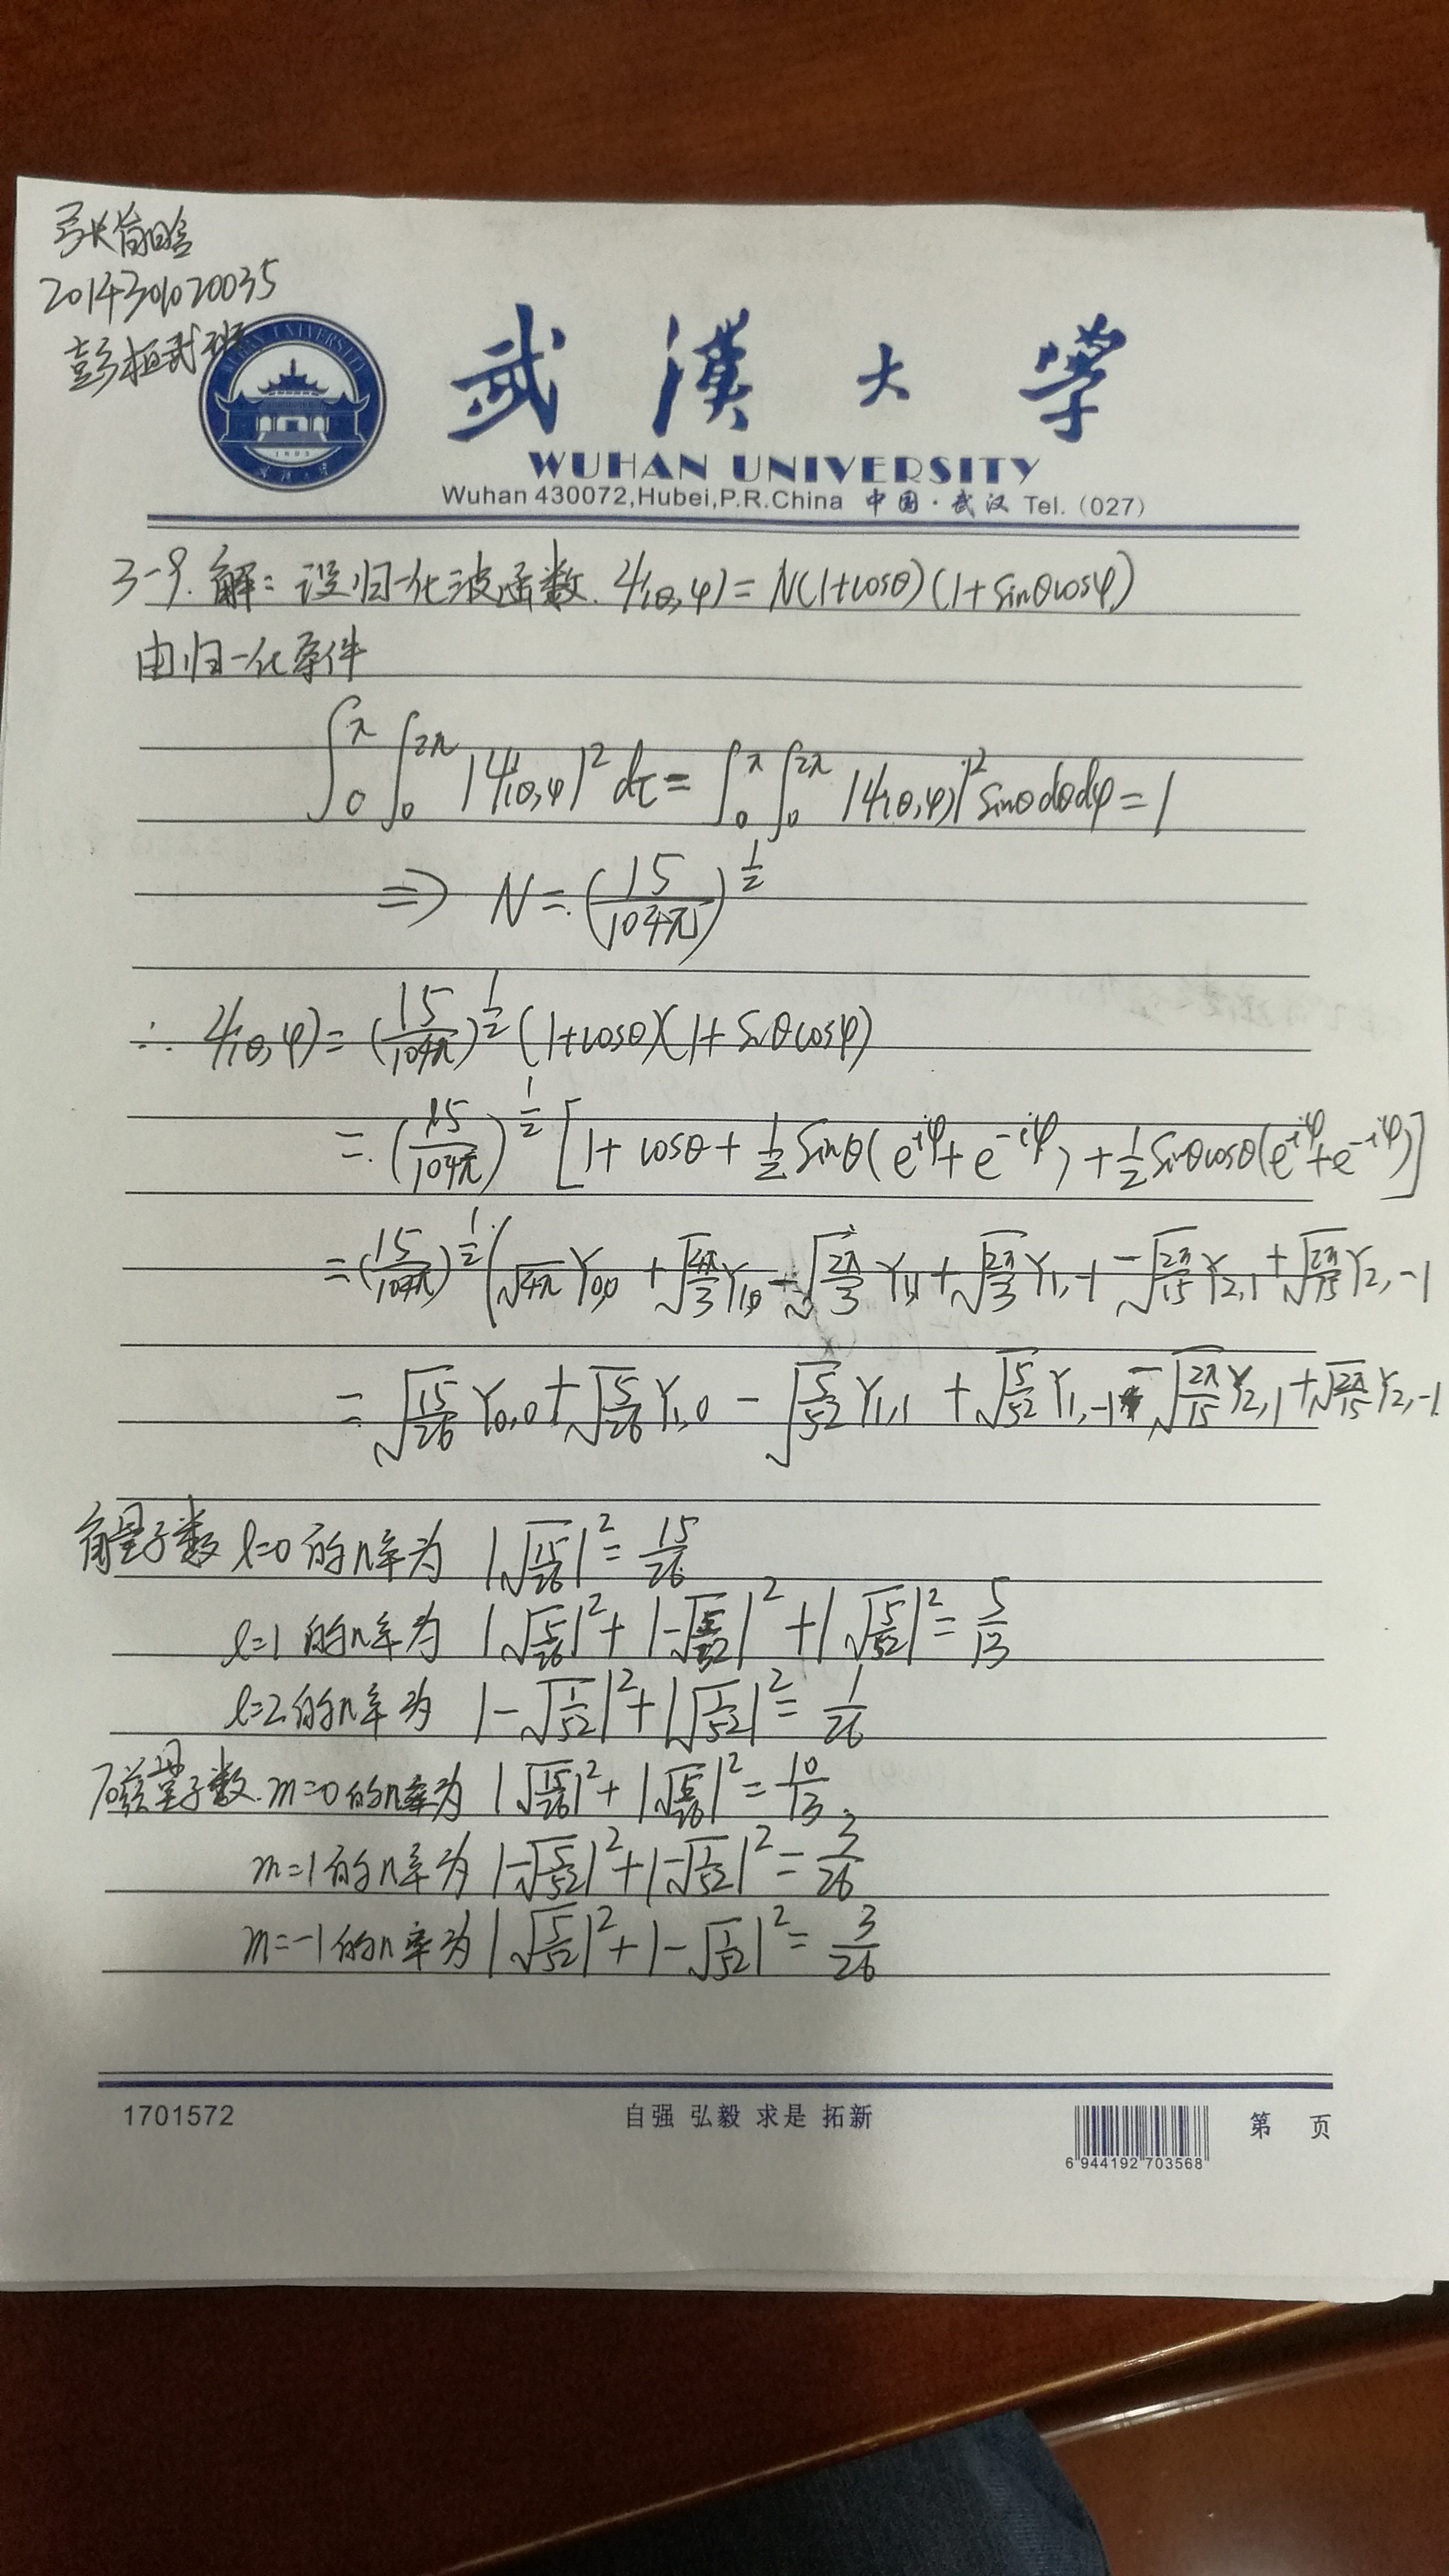 2014301020035
彭桓武班
武漢大学
WUHAN UNIVERSITY
Wuhan 430072,Hubei,P.R.China 中国·武汉 Tel.(027)
3-9. 解: 设归一化波函数. ψ(θ,φ) = N(1+cosθ)(1+sinθcosφ)
由归一化条件
∫₀^π ∫₀^2π |ψ(θ,φ)|² dτ = ∫₀^π ∫₀^2π |ψ(θ,φ)|² sinθdθdφ = 1
⇒ N = (15/104π)^½
∴ ψ(θ,φ) = (15/104π)^½ (1+cosθ)(1+sinθcosφ)
= (15/104π)^½ [1+cosθ+½sinθ(e^iφ+e^-iφ)+½sinθcosθ(e^iφ+e^-iφ)]
= (15/104π)^½ (√4π Y0,0 + √(4π/3) Y1,0 - √(2π/3) Y1,1 + √(2π/3) Y1,-1 - √(2π/15) Y2,1 + √(2π/15) Y2,-1
= √(15/26) Y0,0 + √(5/26) Y1,0 - √(5/52) Y1,1 + √(5/52) Y1,-1 - √(2π/15) Y2,1 + √(2π/15) Y2,-1
角量子数 l=0 的几率为 |√(15/26)|² = 15/26
l=1 的几率为 |√(5/26)|² + |-√(5/52)|² + |√(5/52)|² = 5/13
l=2 的几率为 |-√(1/52)|² + |√(1/52)|² = 1/26
磁量子数. m=0 的几率为 |√(15/26)|² + |√(5/26)|² = 10/13.
m=1 的几率为 |-√(5/52)|² + |-√(1/52)|² = 3/26
m=-1 的几率为 |√(5/52)|² + |-√(1/52)|² = 3/26
1701572
自强 弘毅 求是 拓新
6 944192 703568
第 页